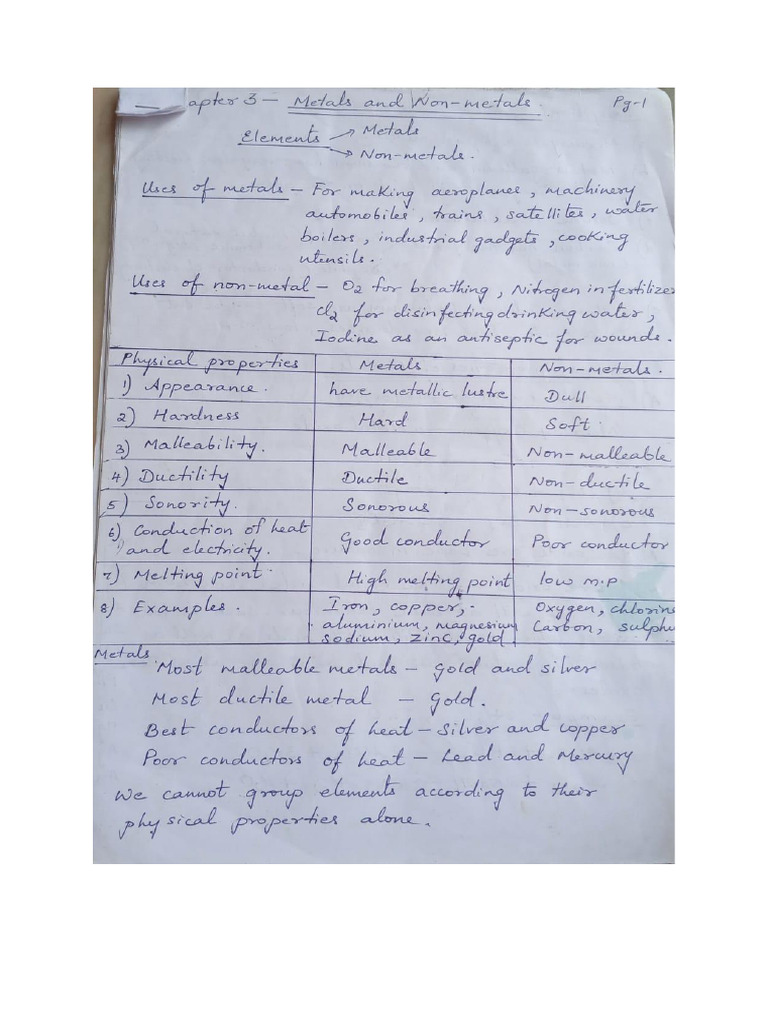 apter 3 — Metals and Non-metals. Pg-1
Elements → Metals
→ Non-metals.
Uses of metals — For making aeroplanes, machinery
automobiles, trains, satellites, water
boilers, industrial gadgets, cooking
utensils.
Uses of non-metal — O2 for breathing, Nitrogen in fertilizer
Cl2 for disinfecting drinking water,
Iodine as an antiseptic for wounds.
Physical properties Metals Non-metals.
1) Appearance. have metallic lustre Dull
2) Hardness Hard Soft.
3) Malleability. Malleable Non-malleable
4) Ductility Ductile Non-ductile
5) Sonority. Sonorous Non-sonorous
6) Conduction of heat
and electricity. Good conductor Poor conductor
7) Melting point. High melting point low m.p
8) Examples. Iron, copper, Oxygen, chlorine
aluminium, magnesium Carbon, sulphu
sodium, zinc, gold
Metals
Most malleable metals — Gold and silver
Most ductile metal — Gold.
Best conductors of heat — Silver and copper
Poor conductors of heat — Lead and Mercury
We cannot group elements according to their
physical properties alone.